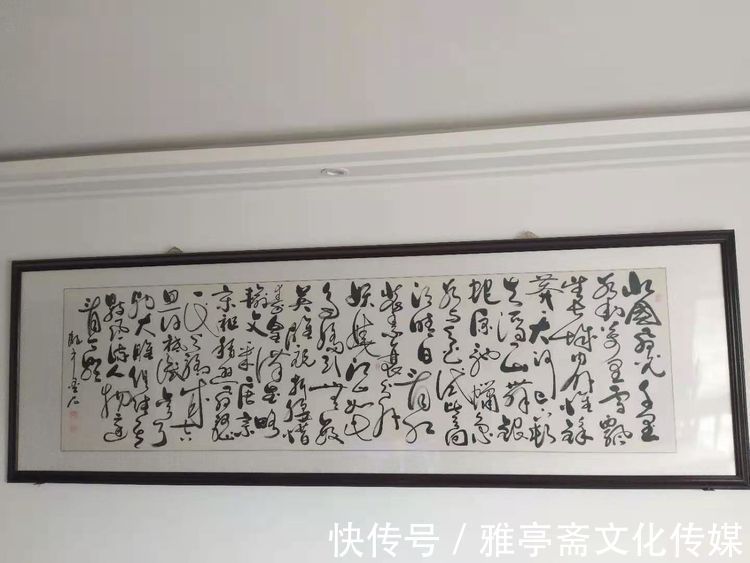 北国风光千里
冰封万里雪飘
望长城内外惟余
莽莽大河上下顿
失滔滔山舞银
蛇原驰蜡象欲
与天公试比高
须晴日看红
装素裹分外
妖娆江山如此
多娇引无数
英雄竞折腰惜
秦皇汉武略
输文采唐宗
宋祖稍逊风骚
一代天骄成吉
思汗只识弯弓
射大雕俱往矣
数风流人物还
看今朝
快传号 / 雅亭斋文化传媒